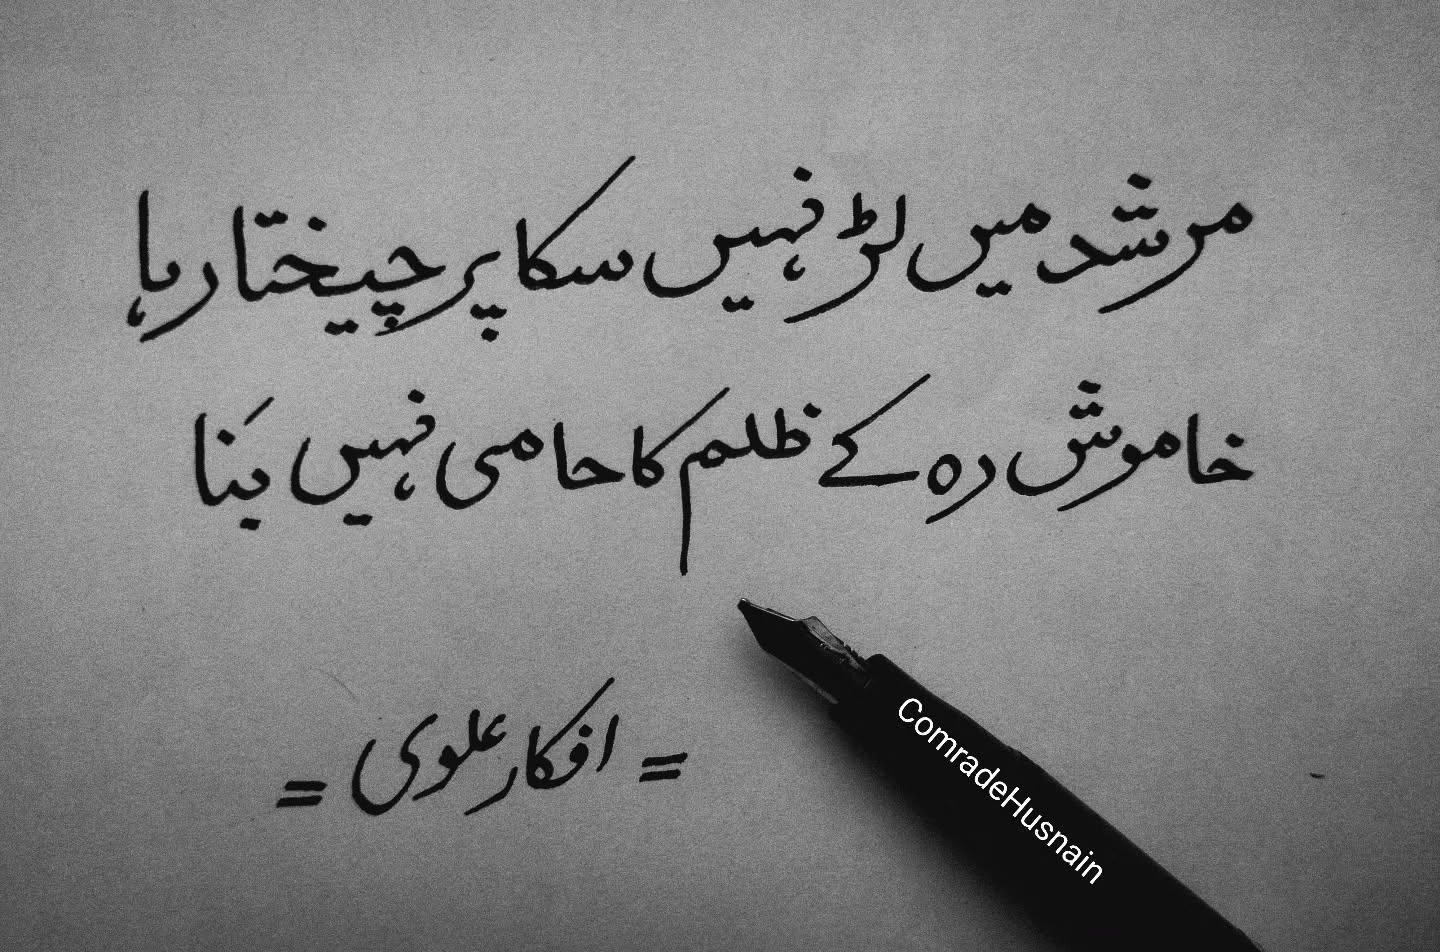 مرشد میں لڑ نہیں سکا پر چیختا رہا
خاموش رہ کے ظلم کا حامی نہیں بَنا
= افکار علوی =
ComradeHusnain